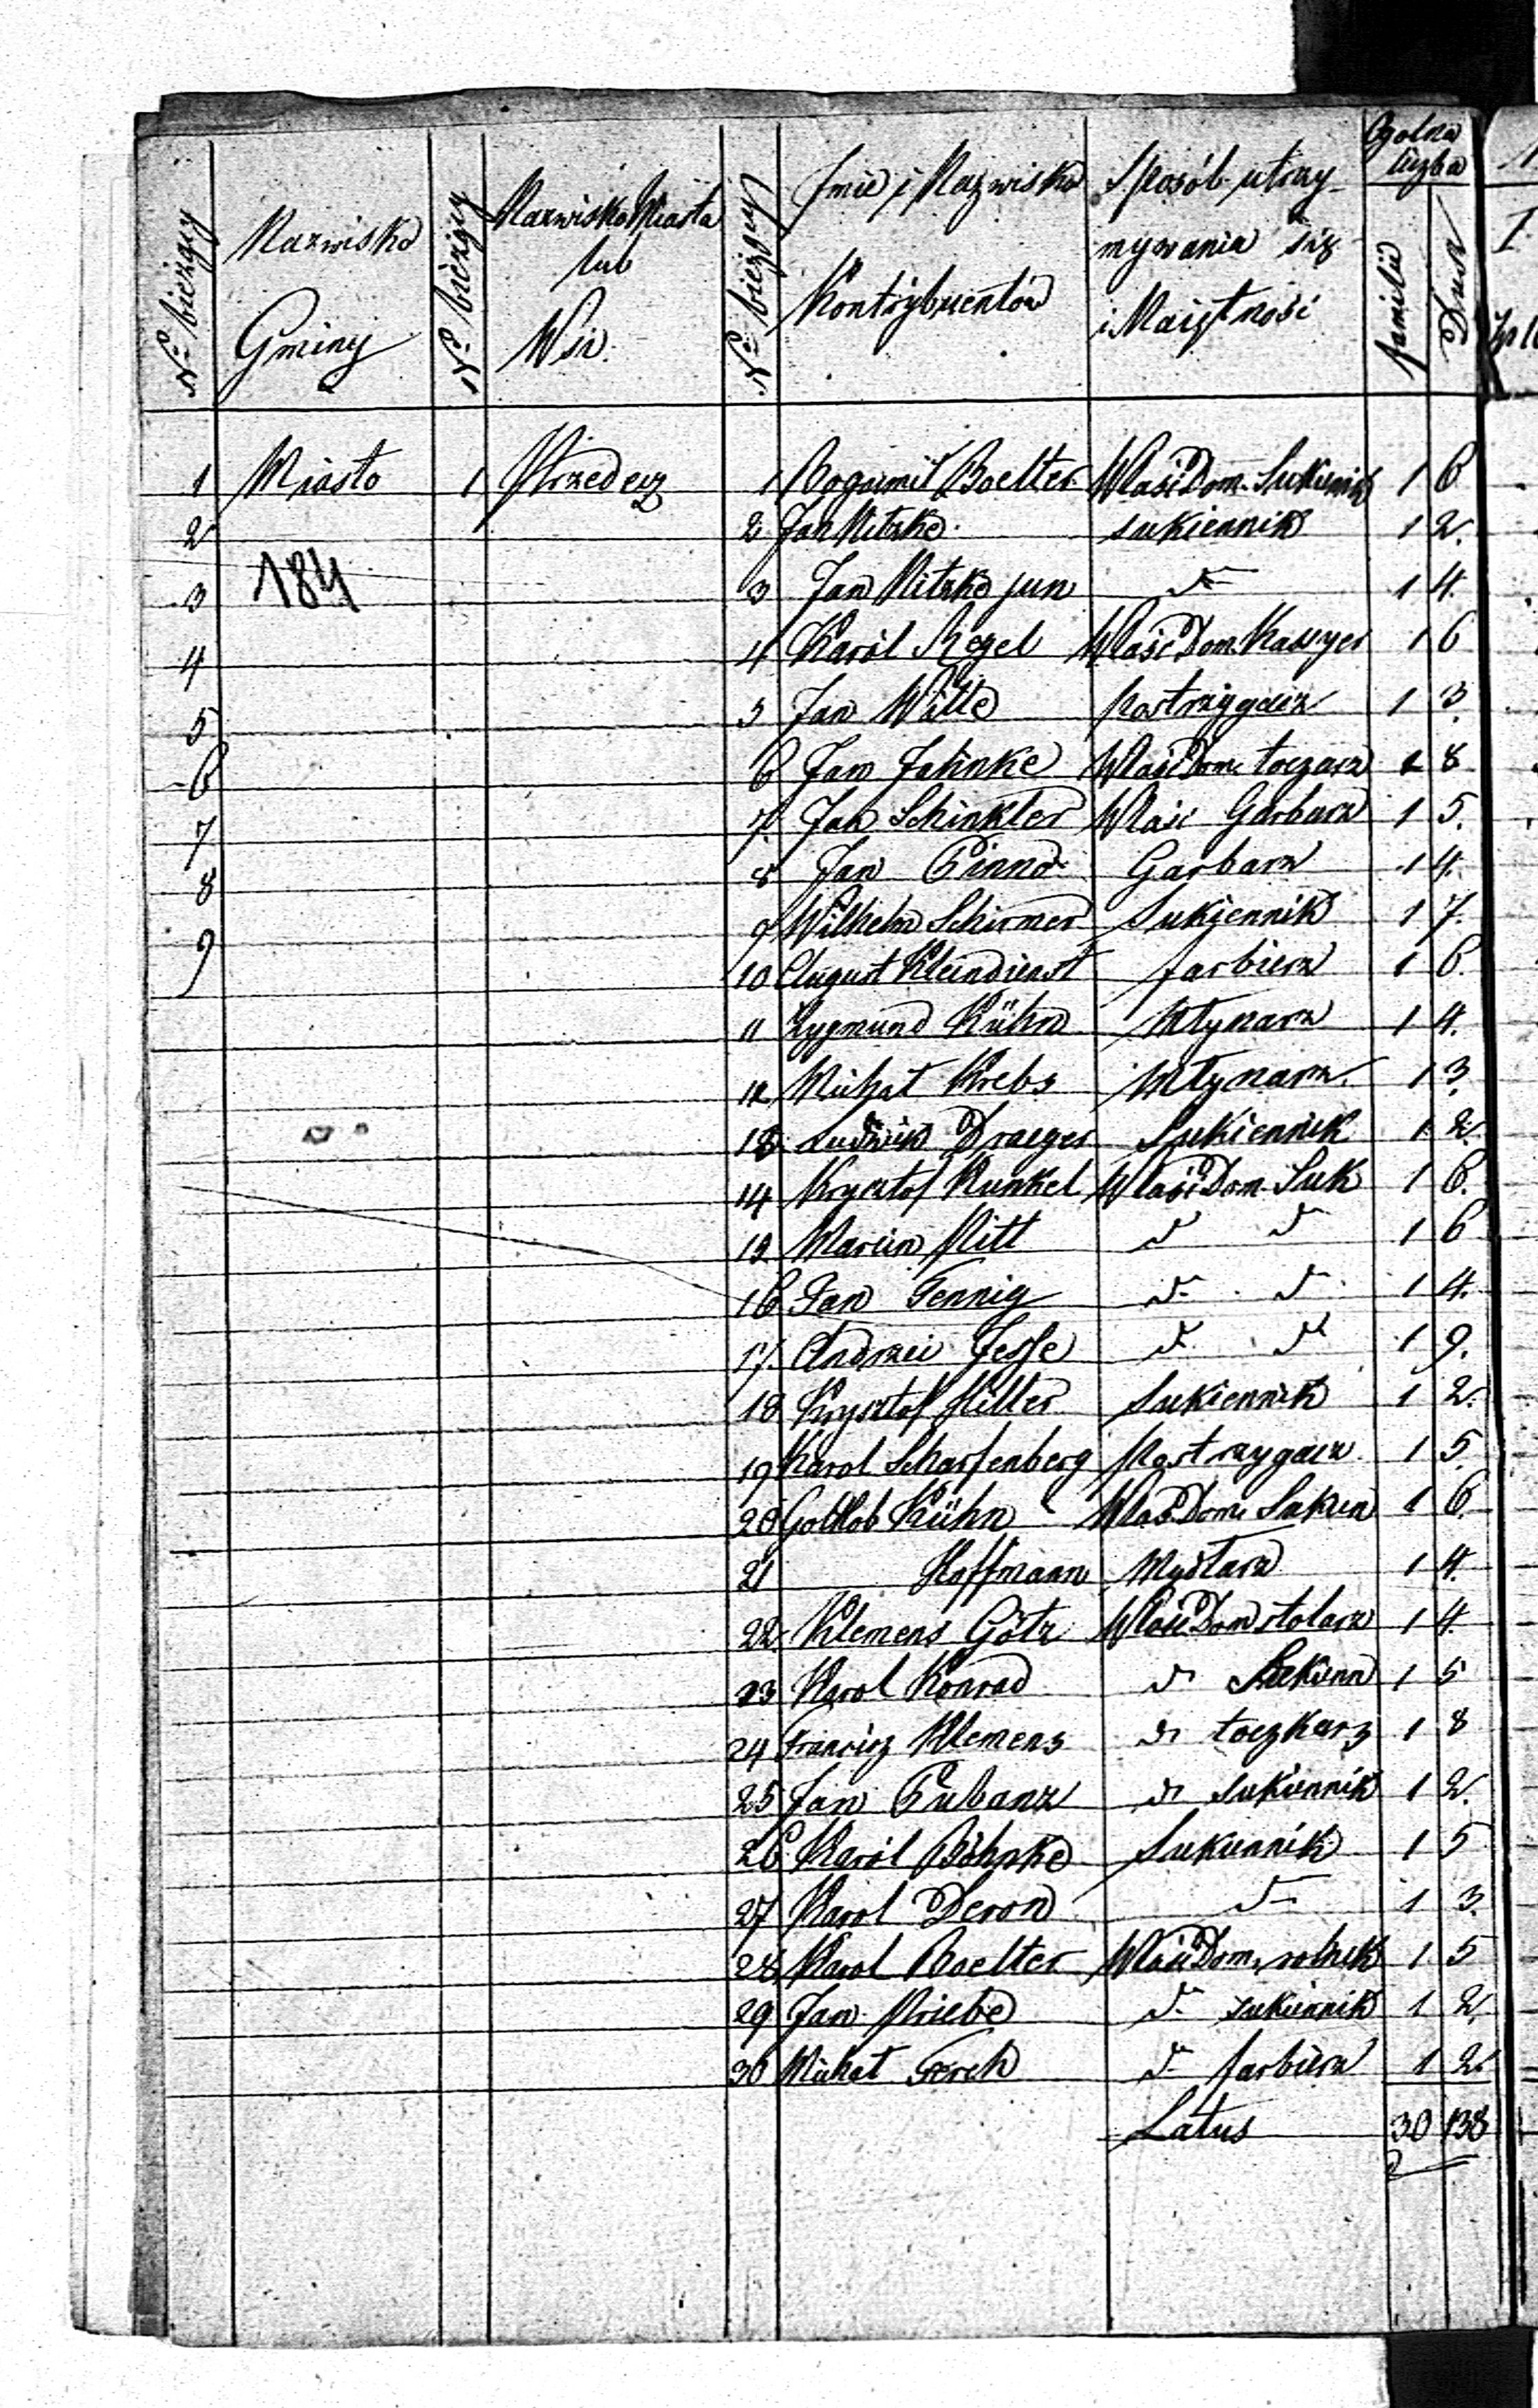 Ogolna
liczba
Nº bieżący
Nazwisko
Gminy
Nº bieżący
Nazwisko Miasta
lub
Wsi.
Nº bieżący
Jmie i Nazwisko
Kontrybuentów
Sposób utrzy-
mywania się
i Maiętność
familii
Dusz
1 Miasto 1 Przedecz 1 Bogumił Boelter Właśc Dom. Sukiennik 1 6
2 2 Jan Nitzke sukiennik 1 2.
3 184 3 Jan Nitzke jun d- 1 4.
4 4 Karól Kegel Właśc Dom. Kassyer 1 6
5 5 Jan Witte Postrzygacz 1 3.
6 6 Jan Jahnke Właśc Dom. toczarz 1 8
7 7. Jan Schinkler Właśc Garbarz 1 5.
8 8 Jan Pinno Garbarz 1 4.
9 9 Wilhelm Schirmer Sukiennik 1 7.
10 August Kleindienst farbierz 1 6.
11 Zygmund Kühn Młynarz 1 4.
12 Michał Krebs Młynarz. 1 3.
13 Ludwik Draeger Sukiennik 1 2.
14 Krysztof Kunkel Właśc Dom. Suk 1 6.
15 Marcin Pitt d d 1 6
16 Jan Fennig d- d 1 4.
17. Andrzei Jesse d d 1 9.
18 Krysztof Hiller Sukiennik 1 2.
19 Karol Scharfenberg Postrzygacz 1 5.
20 Gottlob Kühn Właś Dom. Sukien 1 6.
21 Hoffmann Mydłarz 1 4.
22. Klemens Götz Właśc Dom stolarz 1 4.
23 Karol Konrad d Sukienn 1 5
24 Francisz Klemens d toczkarz 1 8
25 Jan Pubanz d sukiennik 1 2.
26 Karól Böhnke Sukiennik 1 5
27 Karol Deron d- 1 3.
28 Karol Boelter Właśc Dom, rolnik 1 5
29 Jan Priebe d- sukiennik 1 2.
30 Michał Ferch d- farbierz 1 2.
Latus 30 138